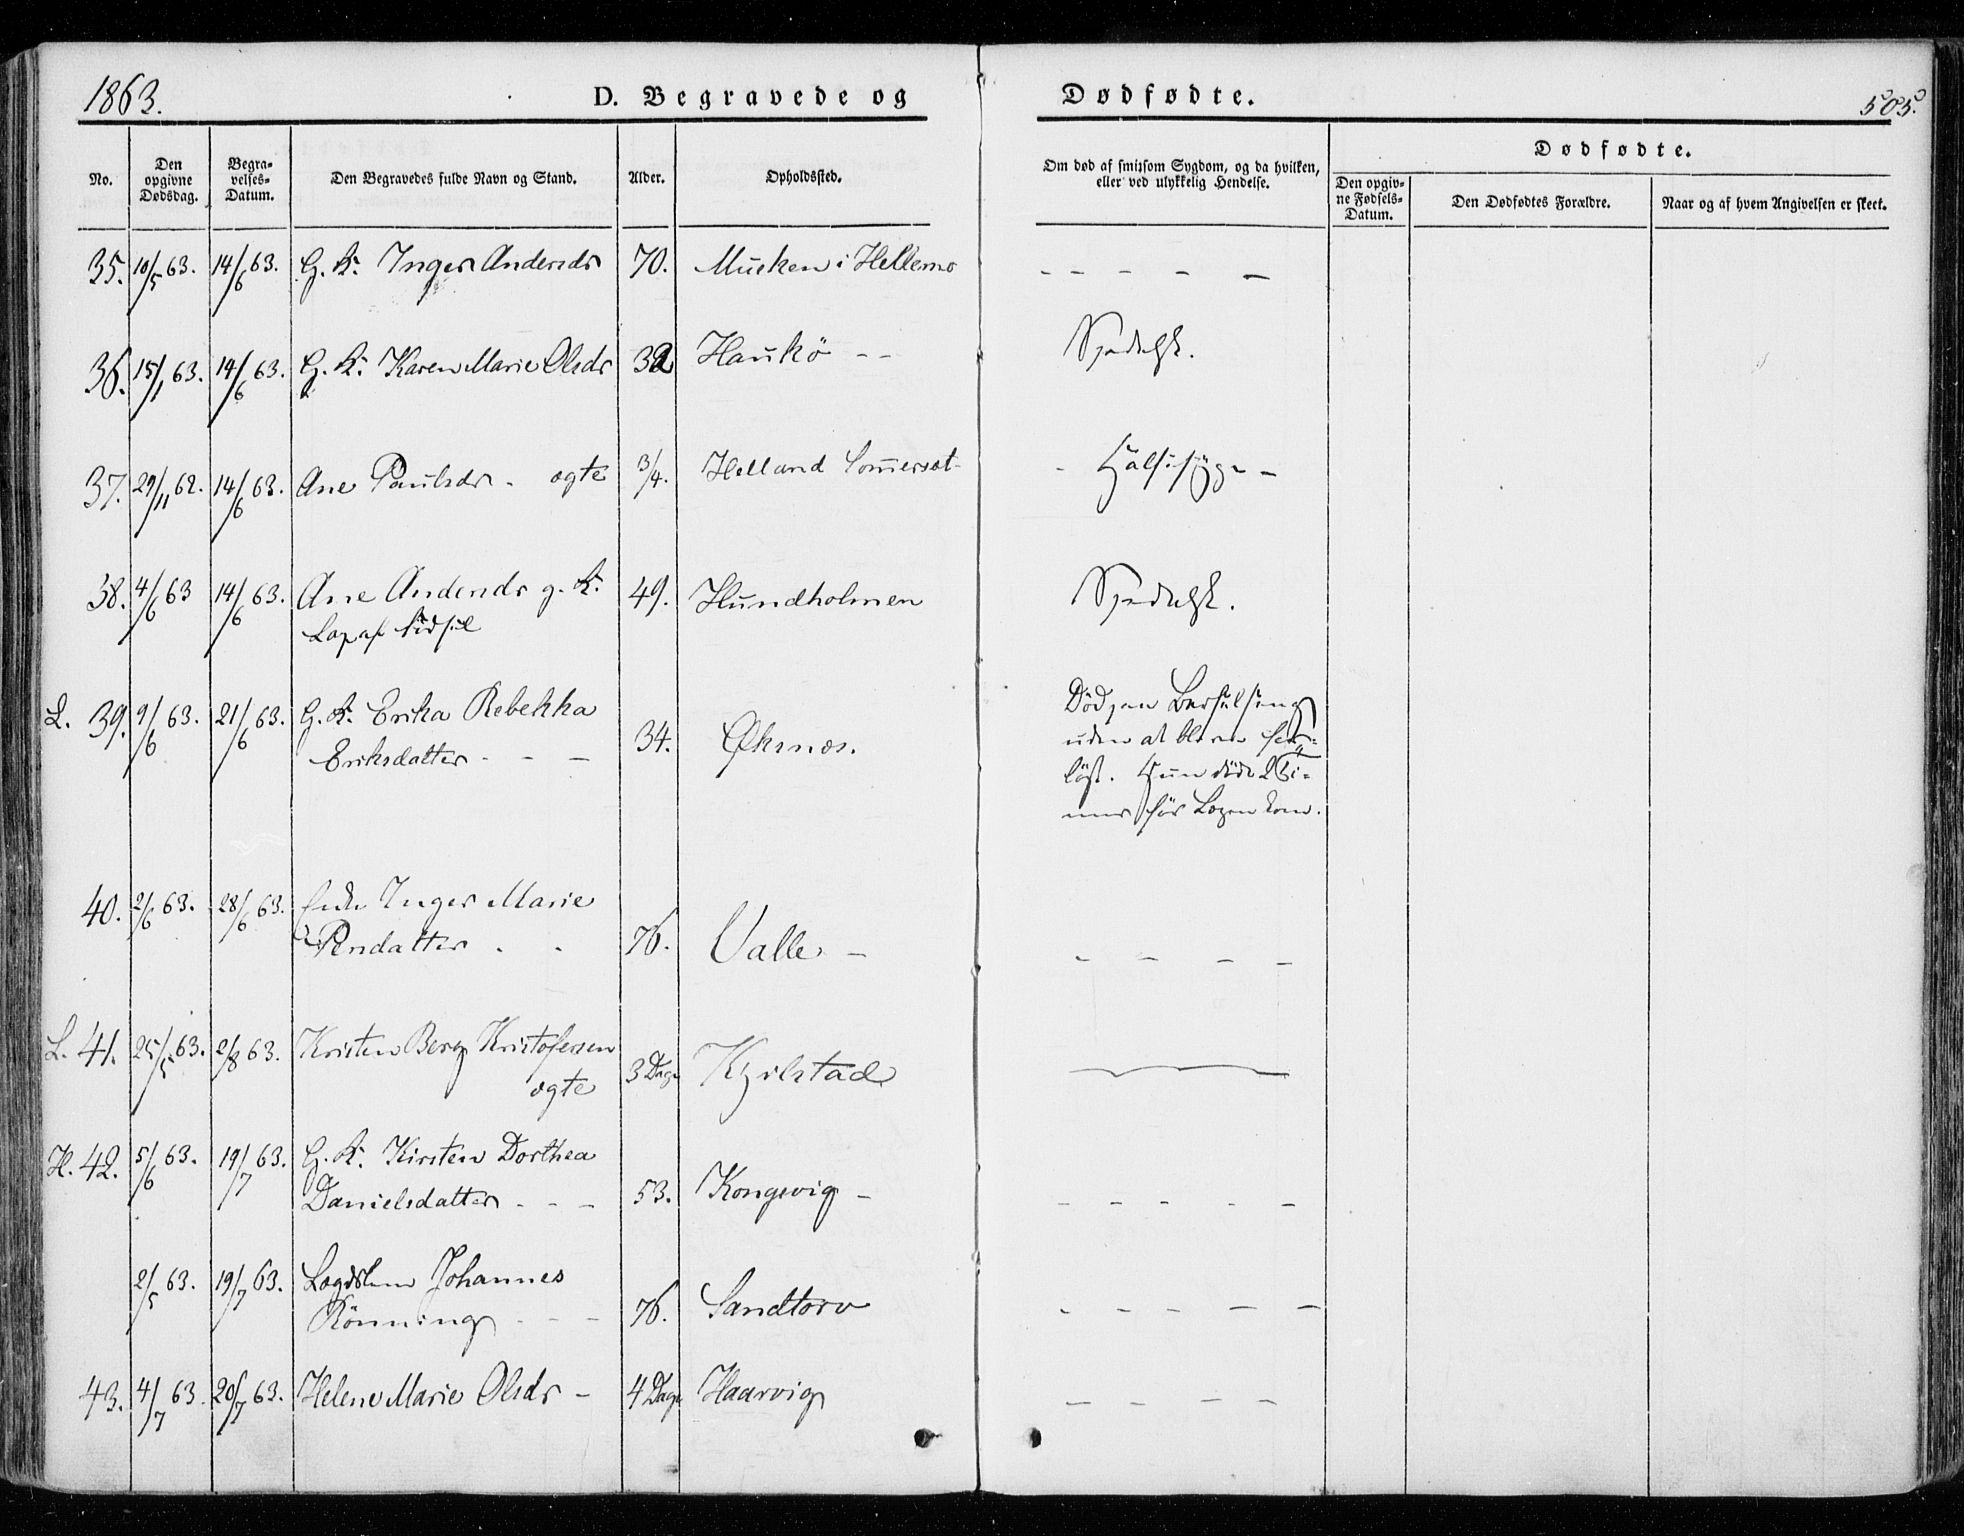 1863. D. Begravede og Dødfødte. 505.
No. Den opgivne Dødsdag. Begravelses-Datum. Den Begravedes fulde Navn og Stand. Alder. Opholdssted. Om død af smitsom Sygdom, og da hvilken, eller ved ulykkelig Hendelse. Dødfødte.
Den opgivne Fødsels-Datum. Den Dødfødtes Forældre. Naar og af hvem Angivelsen er skeet.
35. 10/5 63. 14/6 63. G. K. Inger Andersdr 70. Musken i Hellemo - - - - -
36. 15/1 63. 14/6 63. G. K. Karen Marie Olsdr 32 Haukö - - Spedalsk.
37. 29/11 62. 14/6 63. Ane Paulsdr - ægte 3/4. Helland Somerset - - Halssyge -
38. 4/6 63 14/6 63. Ane Andersdr g. K. 49. Hundholmen Spedalsk.
Lap af
L. 39. 9/6 63. 21/6 63. G. K. Erika Rebekka
Eriksdatter - - - 34. Øksnæs.
Död paa Barselseng
uden at blive for-
löst. Hun döde 2 Ti-
mer för Lægen kom.
40. 2/6 63. 28/6 63. Enke Inger Marie
Persdatter - - 76. Valle - - - - -
L. 41. 25/5 63. 2/8 63. Kristen Berg Kristofersen
ægte 3 Dage Kjilstad
H. 42. 5/6 63. 19/7 63. G. K. Kirsten Dorthea
Danielsdatter - - - 53. Kongsvig - - - - - -
2/5 63. 19/7 63. Lægdslem Johannes
Rönning - - - 76. Sandtorv - - - - -
43. 4/7 63. 20/7 63. Helene Marie Olsdr - 4 Dage Haarvig - - - -